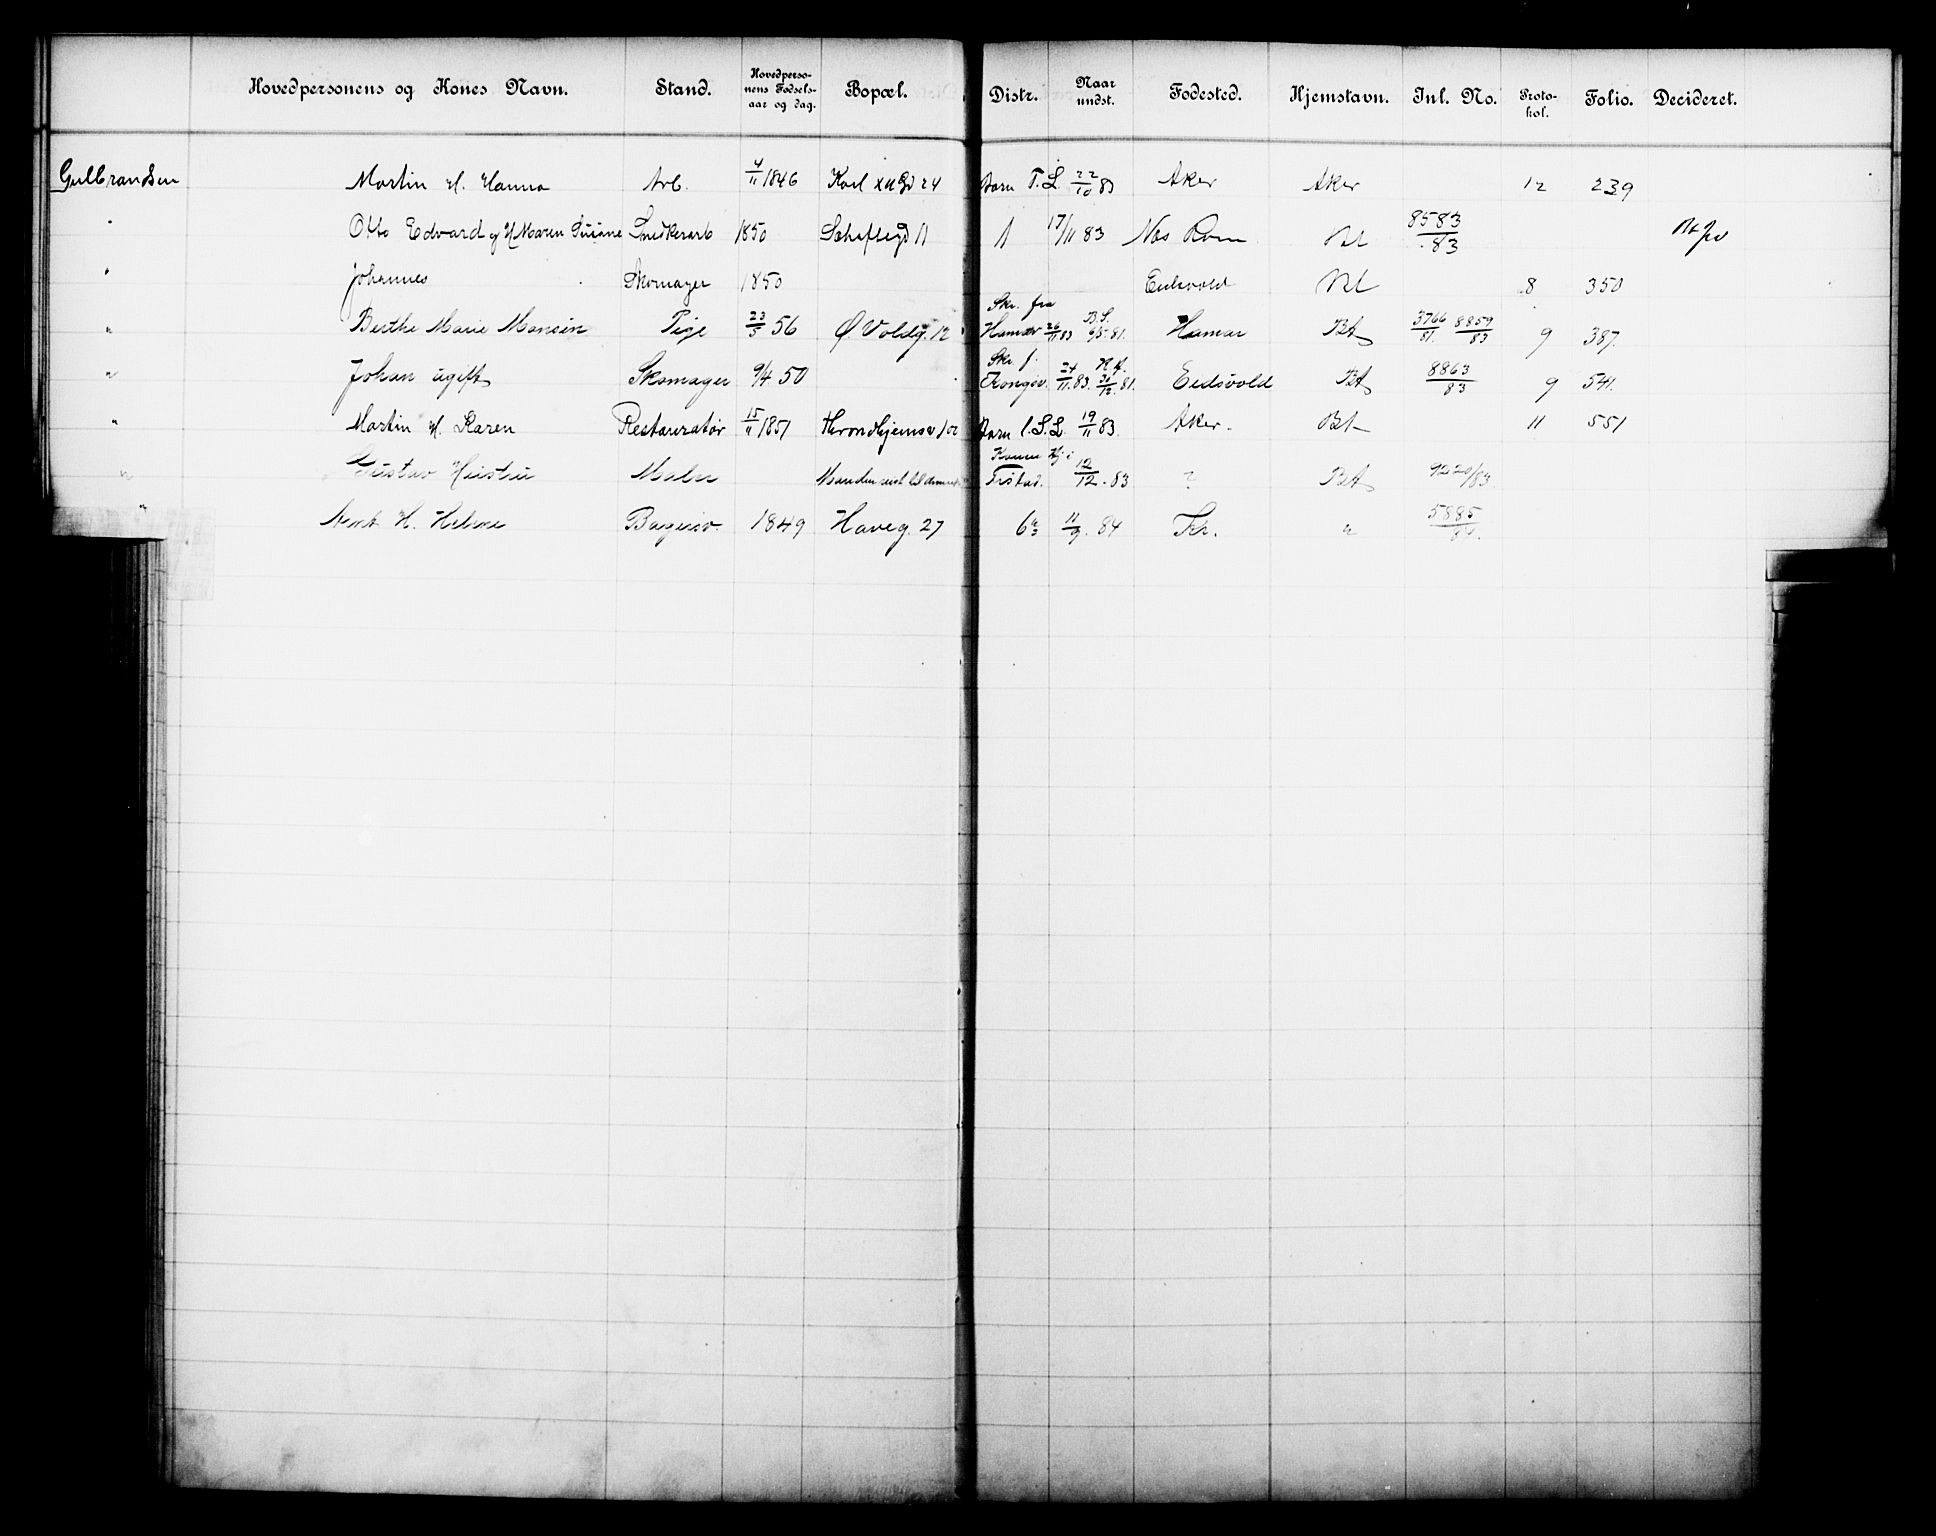 Hovedpersonens og Kones Navn. Stand. Hovedpersonens Fødselsaar og dag. Bopæl. Distr. Naar undst. Fødested. Hjemstavn. Inl. No. Protokol. Folio. Decideret.
Gulbrandsen Martin H. Hanna Arb. 4/11 1846 Karl XII Gd 24 Barn T. L. 22/10 83 Aker Aker 12 239
" Otto Edvard og H Maren Snedkerarb 1850 11 17/11 83 Næs Rom 8583/83
" Johannes Skomager 1850 Eidsvold 8 350
Skr. fra B.S.
" Berthe Marie Monsen Pige 23/5 56 Ø. Voldg. 12 Hamar 26/11 83 9/5. 81. Hamar Bt 3766/81. 8859/83 9 387.
Skr. f.
" Johan ugift Skomager 9/4 50 Kongsv. 24/11. 83. 81. Eidsvold Bt 8863/83 9 541.
" Martin H. Karen Restauratør 15/11 1851 Throndhjemsv 100 Barn 19/11 83 Aker. Bt 11 551
" Gustav Hustru Maler 12/12. 83 ? Bt 9220/83
" H. Helene 1849 Haveg. 27 11/9. 84 Kr. " 5885/84.